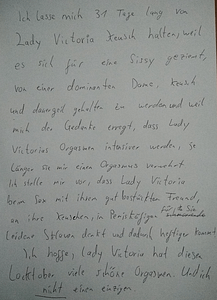 Ich lasse mich 31 Tage lang von
Lady Victoria keusch halten, weil
es sich für eine Sissy geziemt,
von einer dominanten Dame, keusch
und dauergeil gehalten zu werden und weil
mich der Gedanke erregt, dass Lady
Victorias Orgasmen intensiver werden, je
länger Sie mir einen Orgasmus verwehrt
Ich stelle mir vor, dass Lady Victoria
beim Sex mit ihrem gut bestückten Freund,
an ihre keusche, im Peniskäfig für Sie
leidene Sklavin denkt und dadurch heftiger kommt
Ich hoffe, Lady Victoria hat diesen
Locktober viele schöne Orgasmen. Und ich
nicht einen einzigen.